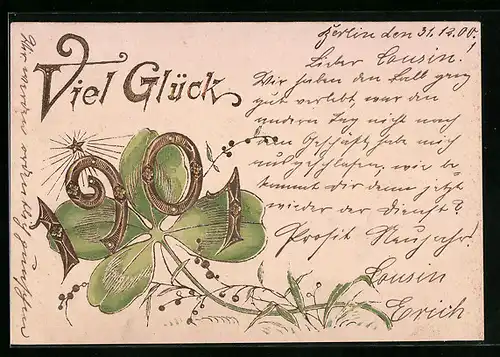 Viel Glück
1901
Berlin den 31.12.00.
Lieber Cousin!
Wir haben den Fall ganz
gut verlebt, war den
andern Tag nicht nach
dem Geschäft, habe mich
ausgeschlafen, wie be
kommt Dir denn jetzt
wieder der Dienst?
Prosit Neujahr!
Cousin
Erich